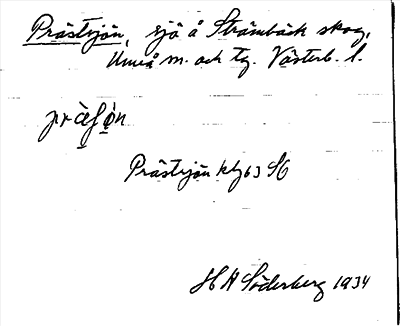 Prästsjön, sjö å Strömbäck skog,
Umeå m. och tg. Västerb. l.
Prästsjön
H A Söderberg 1934